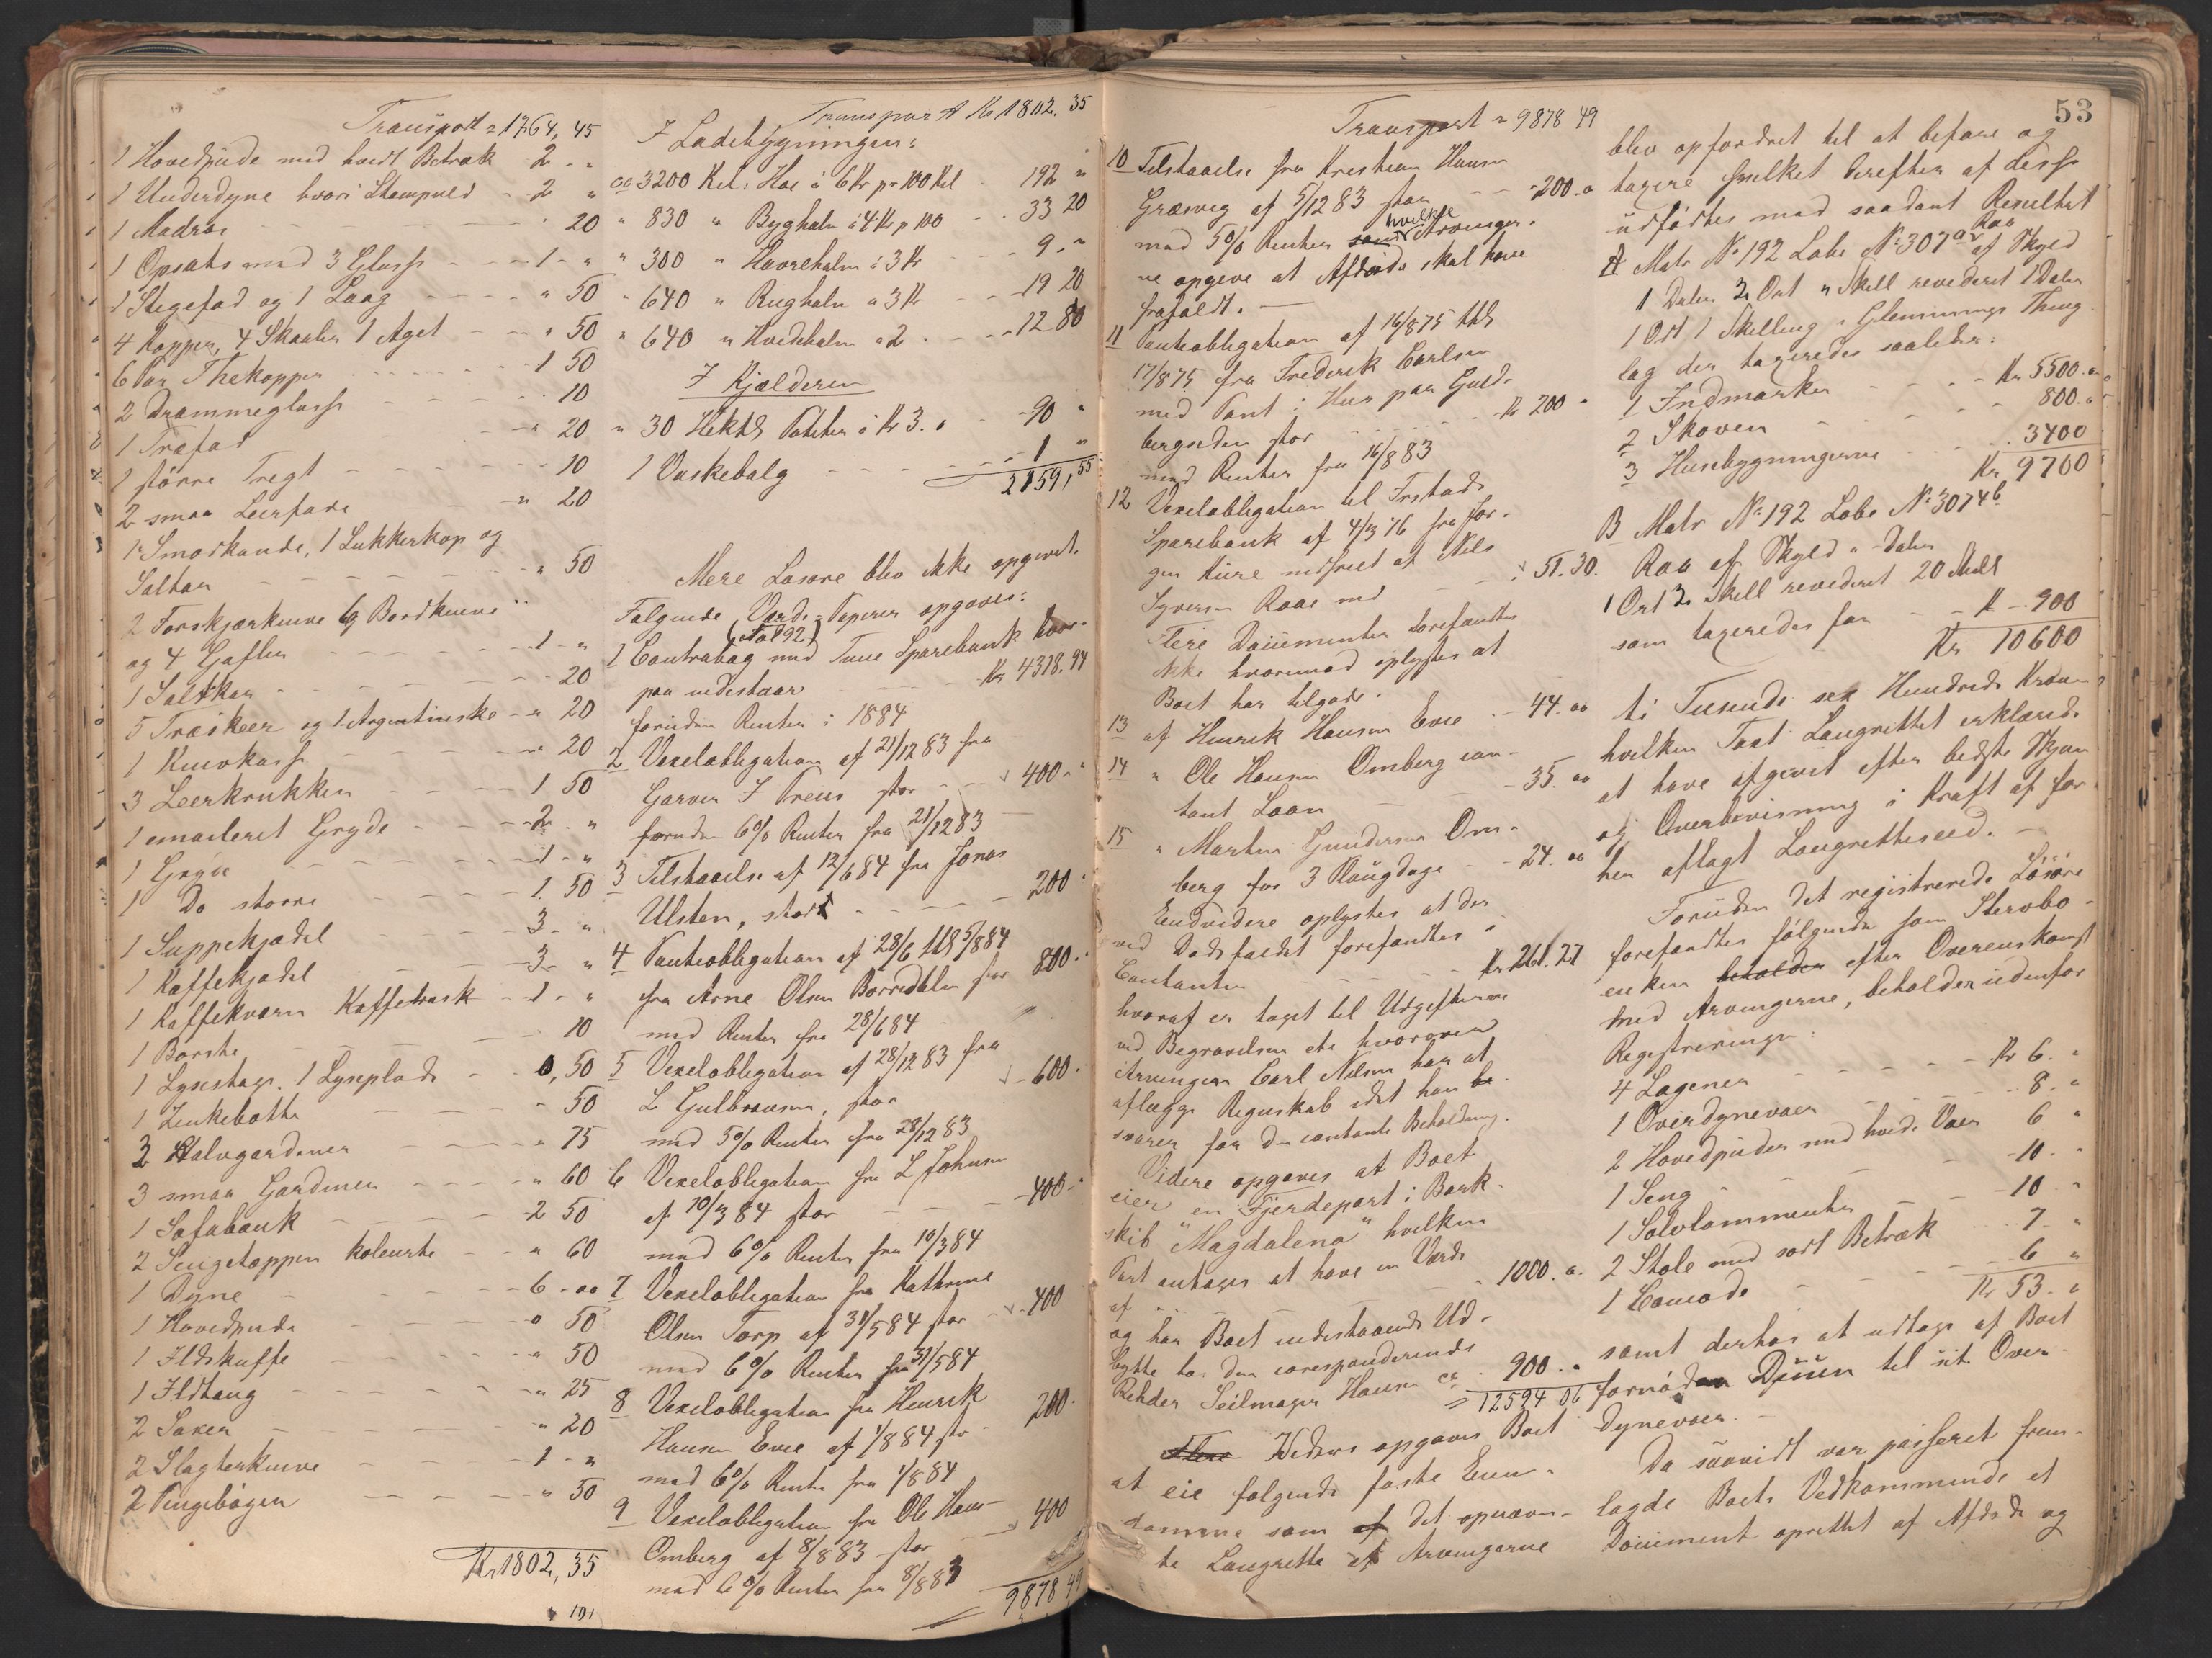 Transport = 1764, 45
1 Hovedpude med hvidt Betræk 2 - "
1 Underdyne hvori Stampuld - 2 "
1 Madras - - - - " 20
1 Opsats med 3 Glass - - - 1 - "
1 Stegefad og 1 Laag - - - " 50
4 Kopper, 4 Skaaler 1 Aget - - " 50
6 Par Thekopper - - - 1 50
2 Drammeglass - - - " 10
1 Træfad - - " 20
1 større Tregt - - - " 10
2 smaa Leerfade - " 20
1 Smørkande, 1 Sukkerkop og
Saltkar - - - - " 50
2 Forskjærknive 6 Bordknive
og 4 Gafler - - - 1 - "
1 Saltkar - - - - 20
5 Træskeer og 1 Argentinske - " 20
1 Knivkasse - - - " 20
3 Leerkrukker - - - 1 50
1 emaileret Gryde - - - 2 - "
1 Gryde - - - 1 - "
1 Do større - - - 1. 50
1 Suppekjedel - - - 3 - "
1 Kaffekjedel - - - 3 - "
1 Kaffekværn Kaffetrask - 1 - "
1 Børste - - - 10
1 Lysestage. 1 Lyseplade - - 0, 50
1 Zinkebøtte - - - " 50
2 Halvgardiner - - - " 75
3 smaa Gardiner - - - " 60
1 Sofabænk - - - 2 50
2 Sengetæpper kolørte - - " 60
1 Dyne - - - 6 - 00
1 Hovedpude - - - " 50
1 Ildskuffe - - - " 50
1 Ildtang - - - " 25
2 Saxer - - - " 20
2 Slagterknive - - - 1 - "
2 Pengebøger - - - " 50
Kr 1802, 35
Transport Kr 1802. 35
I Ladebygningen:
ca 3200 Kil. Høe à 6 Kr pr 100 Kil - 192 "
" 830 " Byghalm à 4 Kr p 100 - - 33 20
" 300 " Havrehalm à 3 Kr - - 9 - "
" 640 " Rughalm à 3 Kr - - 19 20
" 640 " Hvedehalm à 2 - - - 12 80
I Kjælderen
" 30 Hektl Poteter à Kr 3. - - 90 "
1 Vaskebalg - - - 1 "
2159, 55
Mere Løsøre blev ikke opgivet.
Følgende Værdi-Papirer opgaves:
(Fol 92)
1 Contrabog med Tune Sparebank hvor-
paa indestaar - - - Kr 4318. 94
foruden Renter i 1884
2 Vexelobligation af 21/12 83 fra
Garver J Preus stor - - 400 - "
foruden 6% Renter fra 21/12 83
3 Tilstaaelse af 12/6 84 fra Jonas
Ulsten, stor - - - 200 "
4 Panteobligation af 28/6 tls 5/8 84
fra Arne Olsen Borredalen stor 800 "
med Renter fra 28/6 84
5 Vexelobligation af 28/12 83 fra
L Gulbransen, stor - 600 "
med 5% Renter fra 28/12 83
6 Vexelobligation fra L Johnsen
af 10/3 84 stor - - - 400 - "
med 6% Renter fra 10/3 84
7 Vexelobligation fra Kathrine
Olsen Torp af 31/5 84 stor - - 400
med 6% Renter fra 31/5 84
8 Vexelobligation fra Henrik
Hansen Evie af 1/8 84 str 200 "
med 6% Rente fra 1/8 84
9 Vexelobligation fra Ole Hans-
Omberg af 8/8 83 stor 400
med 6% Renter fra 8/8 83
9878 49
53
Transport = 9878 49
10 Tilstaaelse fra Kristian Hansen
Græsveg af 5/12 83 stor - - 200 - "
med 5% Renter som hvilke Arvinger-
ne opgive at Afdøde skal have
frafaldt. -
11 Panteobligation af 16/8 75 tls
17/8 75 fra Frederik Carlsen
med Pant i Huus paa Guld-
bergsiden stor - - Kr 200 "
med Renter fra 16/8 83
12 Vexelobligation til Fr:stads
Sparebank af 4/3 76 fra for-
gen Kure indfriet af Nils
Syversen Raae med - - 51. 30.
Flere Documenter forefandtes
ikke hvorimod oplystes at
Boet har tilgode:
13 af Henrik Hansen Evie - 44. 00
14 " Ole Hansen Omberg con-
tant Laan - - - 35. 00
15 " Martin Gundersen Om-
berg for 3 Plougdage - - 24. 00
Endvidere oplystes at der
ved Dødsfaldet forefandtes i
Contanter - - - Kr 261. 27
hvoraf er taget til Udgifterne
ved Begravelsen etc hvorover
Arvingen Carl Nilsen har at
aflægge Regnskab idet han be-
svarer for den contante Beholdning.
Videre opgaves at Boet
eier en Fjerdepart i Bark-
skib "Magdalena" hvilken
Part antages at have en Værdi
af - - - 1000. 00
og har Boet indestaaende Ud-
bytte hos den corresponderende
Rehder Seilmager Hansen ca 900. "
= 12594 06
Flere Videre opgaves Boet
at eie følgende faste Eien-
domme som af det opnævn-
te Laugrette af Arvingerne
blev opfordret til at befare og
taxere hvilket derefter af disse
udførtes med saadant Resultat
A Matr No 192 Løbe No 307a Raa af Skyld
1 Daler 2 Ort " Skill revideret 1 Daler
1 Ort 1 Skilling i Glemminge Thing-
lag der taxeredes saaledes:
1 Indmarken - - - Kr 5500. 00
2 Skoven - - - 800. "
3 Husebygningerne - - 3400
Kr 9700
B Matr No 192 Løbe No 3074b
Raa af Skyld " Daler
1 Ort 2 Skill revideret 20 Skill
som taxeredes for - - Kr - 900
Kr 10600
ti Tusinde sex Hundrede Kroner
hvilken Taxt Laugrettet erklærede
at have afgivet efter bedste Skjøn
og Overbevisning i Kraft af for-
hen aflagt Laugretteseed. -
Foruden det registrerede Løsøre
forefandtes følgende som Stervbo-
enken beholder efter Overenskomst
med Arvingerne, beholder udenfor
Registreringen:
4 Lagener - - - Kr 6. "
1 Overdynevaer - - - 8. "
2 Hovedpuder med hvide Vaer 6 "
1 Seng - - - 10. "
1 Sølvlommeuhr - - - 10 "
2 Stole med sort Betræk - - 7 - "
1 Comode - - - 6 "
Kr 53. "
samt derhos at udtage af Boet
fornøden Duun til sit Over-
dynevaer. -
Da saavidt var passeret frem-
lagde Boets Vedkommende et
Document oprettet af Afdøde og